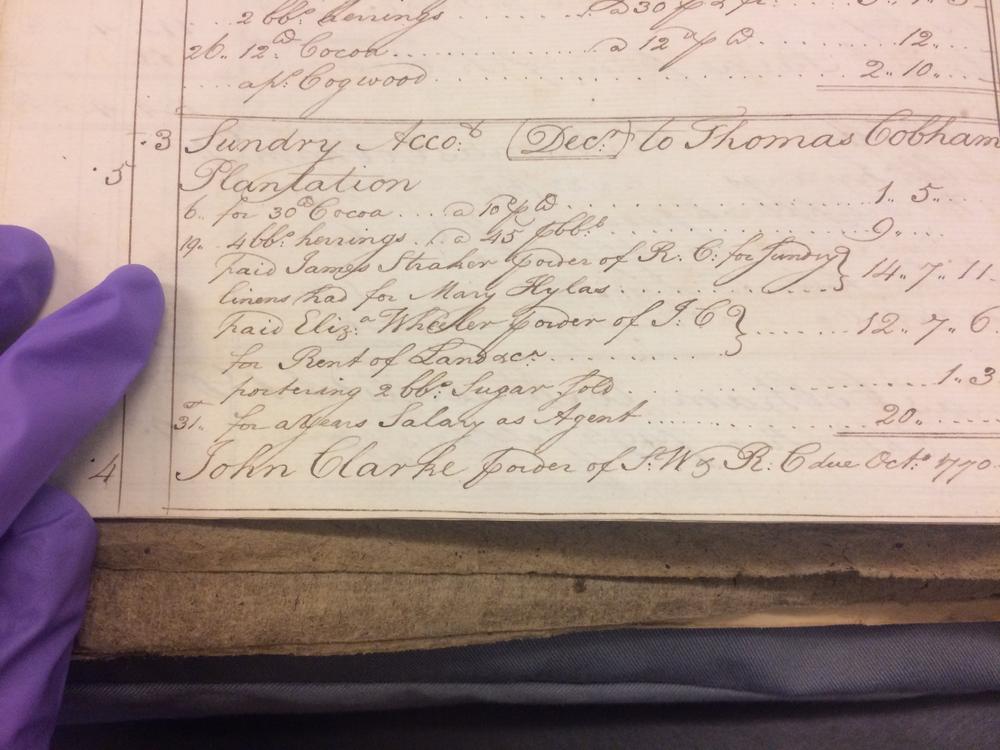 2 bbs herrings . . . . . . . a 30 p
26.. 12 lb Cocoa . . . . . . . . . . . . a 12d p lb . . . . . . . 12..
. . . . apl: Cogwood . . . . . . . . . . . . . . . . . 2.. 10..
3 Sundry Accots: (Decr.) to Thomas Cobham
5 Plantation
6.. for 30 lb Cocoa . . . a 10d p lb . . . . . . . . . . 1.. 5..
19.. 4 bbs herrings . . . a 45 p bbl . . . . . . . . . . 9..
paid James Straker p order of R: C: for Sundry } 14.. 7.. 11
linens had for Mary Hylas . . . . . . . . . . . .
paid Eliza Wheeler p order of J: C } . . . . . . . 12.. 7.. 6
for Rent of Land &cr. . . . . . . . . . .
portering 2 bbs Sugar sold . . . . . . . . . . . . 1.. 3
31st.. for a Years Salary as Agent . . . . . . . . . . 20..
4 John Clarke p order of Sr. W & R: C due Octr 1770